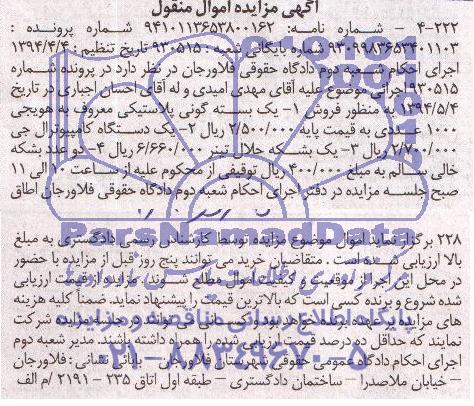 آگهی مزایده اموال منقول
۴-۲۲۲ – شماره نامه: ۹۴۱۰۱۱۳۶۵۳۸۰۰۱۶۲ شماره پرونده :
۹۳۰۹۹۸۳۶۵۳۴۰۱۱۰۳ شماره بایگانی شعبه : ۹۳۰۵۱۵ تاریخ تنظیم : ۱۳۹۴/۴/۴
اجرای احکام شعبه دوم دادگاه حقوقی فلاورجان در نظر دارد در پرونده شماره
۹۳۰۵۱۵ اجرائی موضوع علیه آقای مهدی امیدی و له آقای حسان اجباری در تاریخ
۱۳۹۴/۵/۴ به منظور فروش ۱- یک بسته گونی پلاستیکی معروف به هویجی
۱۰۰۰ عددی به قیمت پایه ۲/۵۰۰/۰۰۰ ریال ۲- یک دستگاه کامپیوترال جی
۲/۷۰۰/۰۰۰ ریال ۳- یک بشکه حلال تینر ۶/۶۶۰/۰۰۰ ریال ۴- دو عدد بشکه
خالی سالم به مبلغ ۴۰۰/۰۰۰ ریال توقیفی از محکوم علیه از ساعت ۱۰ الی ۱۱
صبح جلسه مزایده در دفتر اجرای احکام شعبه دوم دادگاه حقوقی فلاورجان اطاق
۲۲۸ برگزار نماید اموال موضوع مزایده توسط کارشناس رسمی دادگستری به مبلغ
بالا ارزیابی شده است . متقاضیان خرید می توانند پنج روز قبل از مزایده با حضور
در محل این اجرا از موقعیت و کیفیت اموال مطلع شوند، مزایده از قیمت ارزیابی
شده شروع و برنده کسی است که بالاترین قیمت را پیشنهاد نماید. ضمناً کلیه هزینه
های مزایده بر عهده برنده خواهد بود کسانی می توانند در جلسه مزایده شرکت
نمایند که حداقل ده درصد قیمت ارزیابی شده را همراه داشته باشند. مدیر شعبه دوم
اجرای احکام دادگاه عمومی حقوقی شهرستان فلاورجان – بابائی نشانی : فلاورجان
– خیابان ملاصدرا – ساختمان دادگستری – طبقه اول اتاق ۲۳۵ – ۲۱۹۱ /م الف
ParsNamadData
پایگاه اطلاع رسانی مناقصه و مزایده
۰۲۱-۸۸۳۴۹۶۷۰-۵